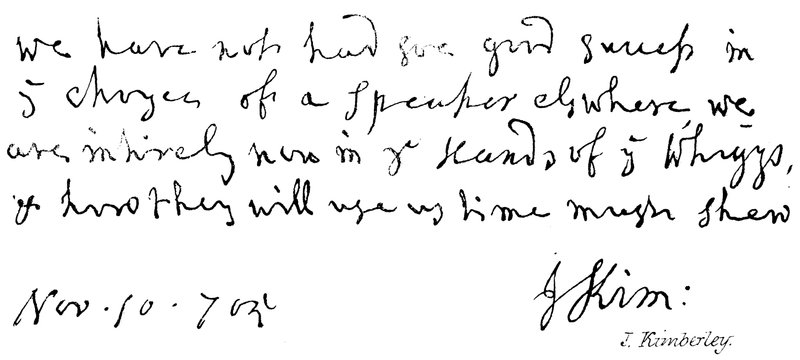 we have not had soe good success in
ye choyce of a Speaker elswhere, we
are intirely now in ye Hands of ye Whiggs,
& how they will use us time must shew
Nov. 10. 705 J Kim:
J. Kimberley.